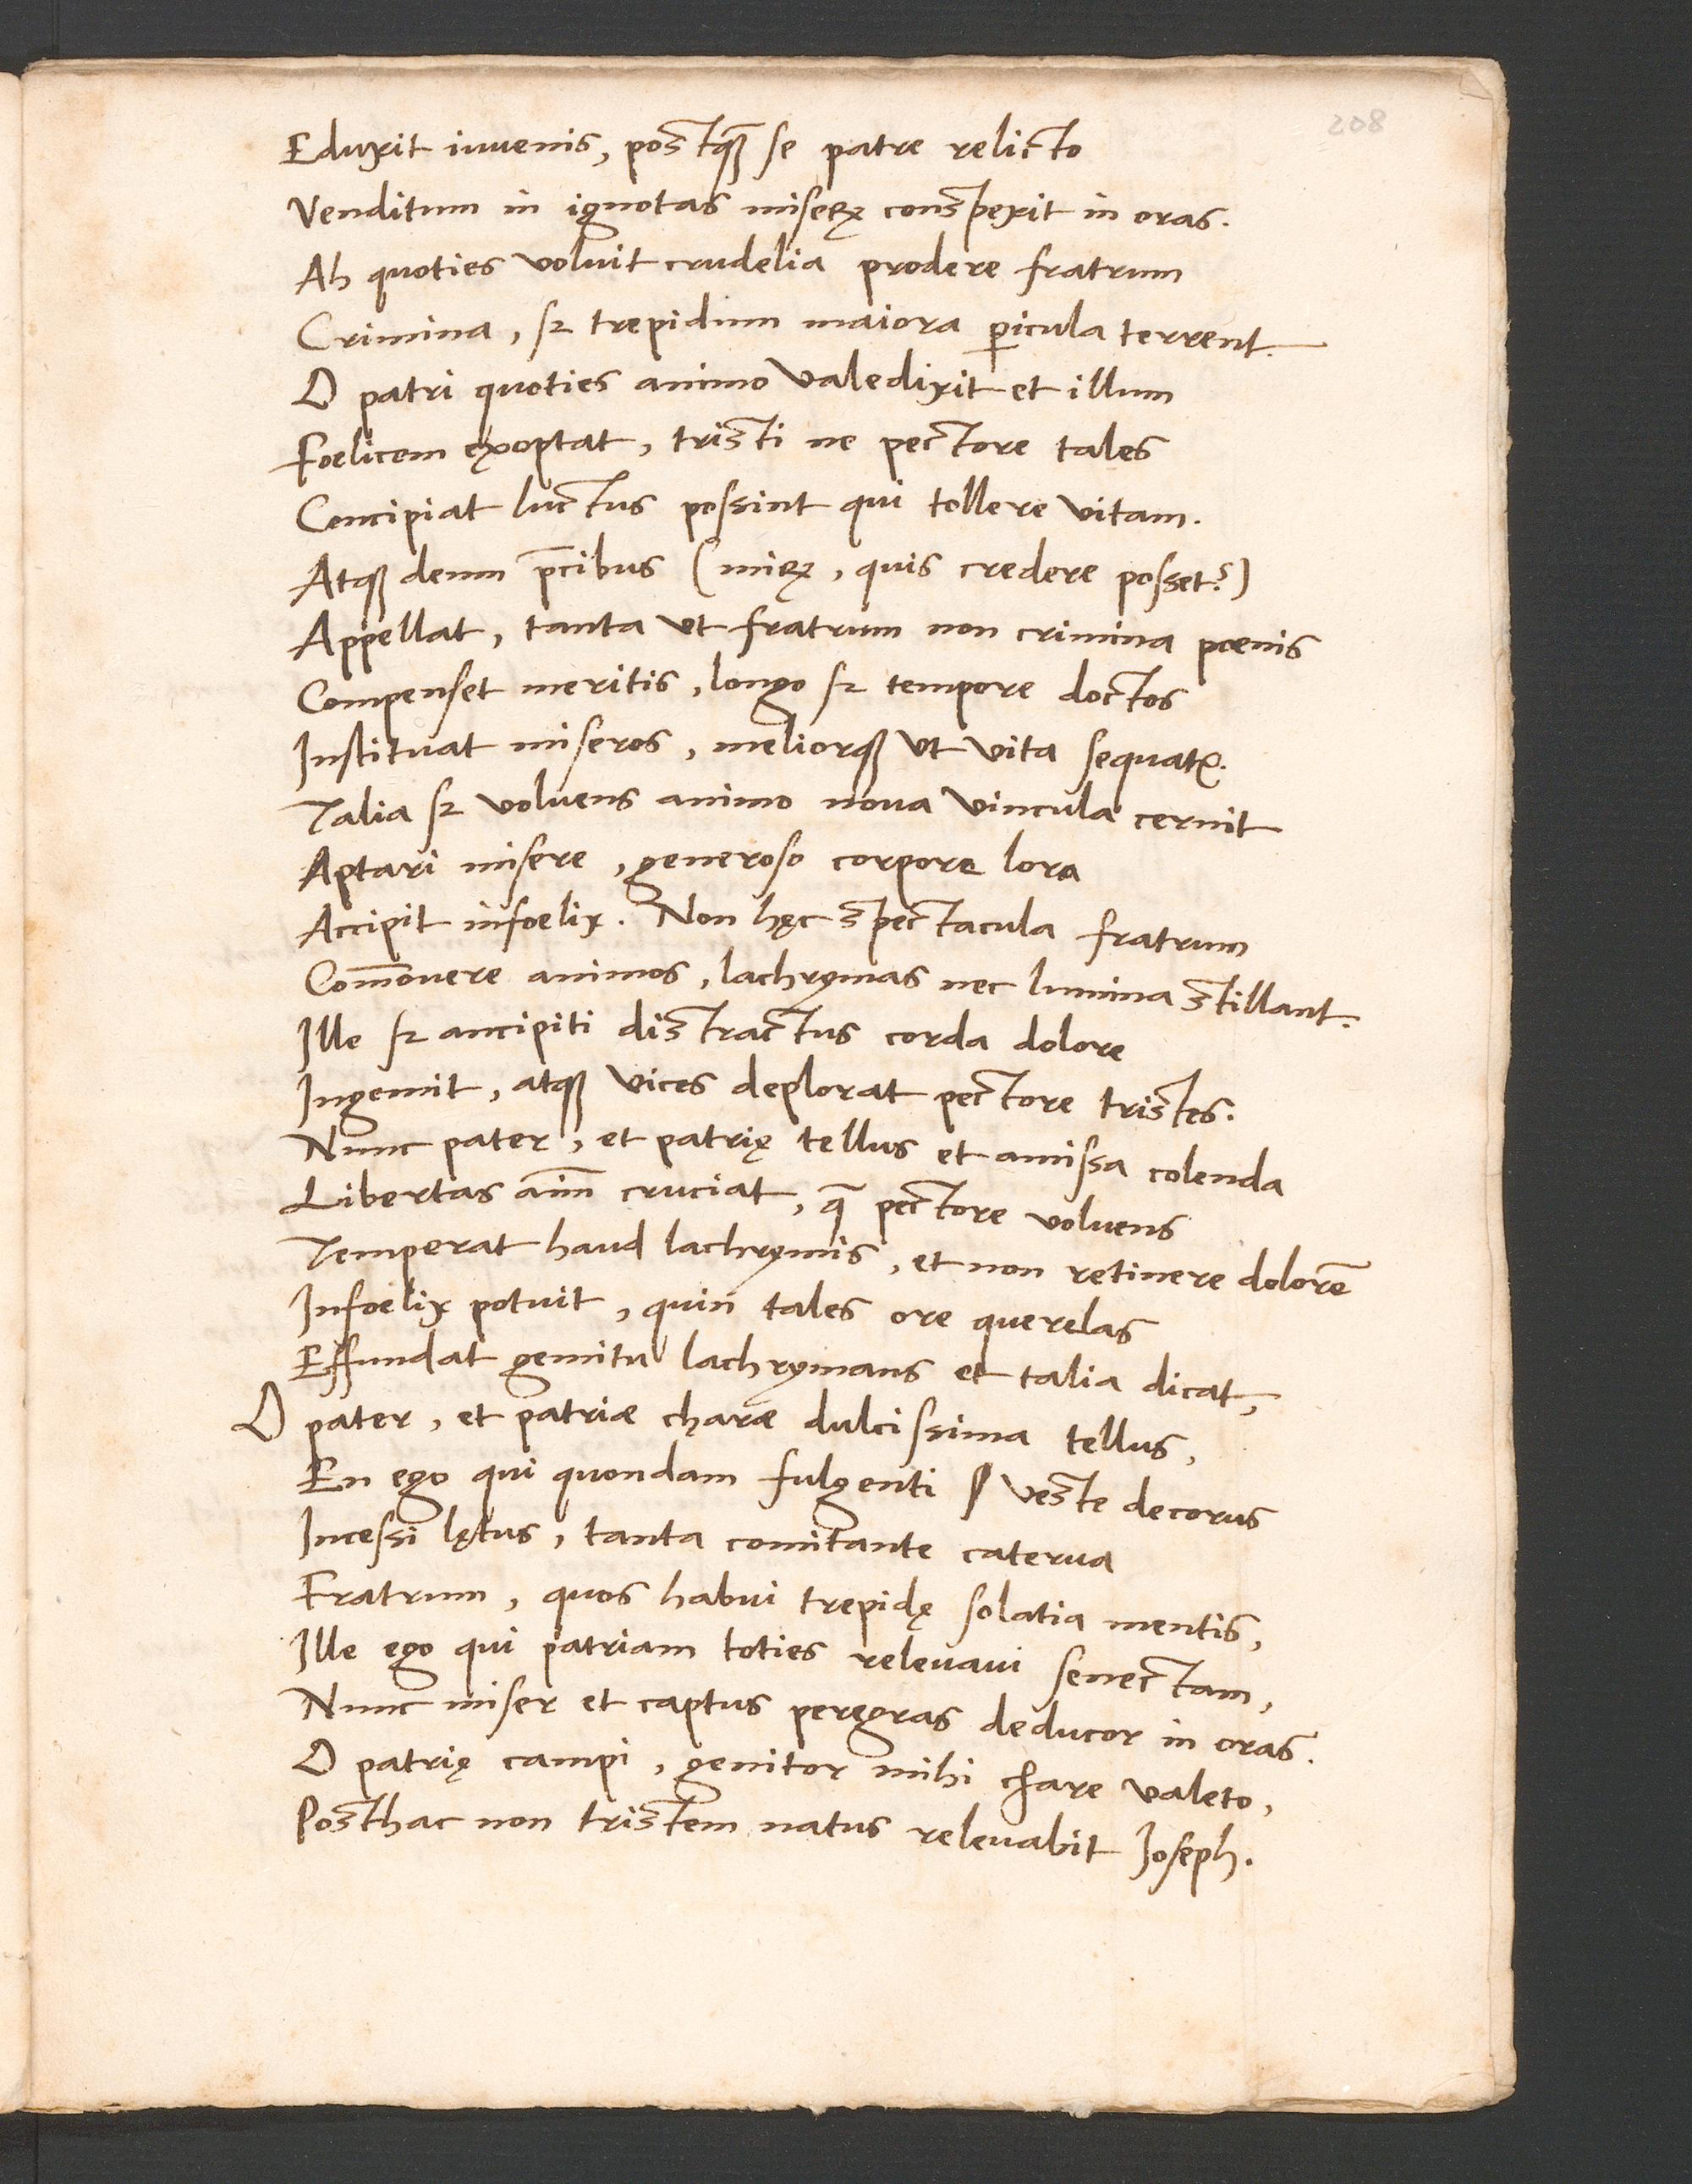 208
Eduxit iuuenis, postqꝫ se patre relicto
Venditum in ignotas miseꝝ conspexit in oras.
Ah quoties voluit crudelia prodere fratrum
Crimina, sꝫ trepidum maiora ꝑicula terrent.
O patri quoties animo valedixit et illum
Foelicem exoptat, tristi ne pectore tales
Concipiat luctus possint qui tollere vitam.
Atqꝫ deum p̄cibus (miꝝ, quis credere posset?)
Appellat, tanta vt fratrum non crimina pœnis
Compenset meritis, longo sꝫ tempore doctos
Instituat miseros, meliorqꝫ vt vita sequatꝛ.
Talia sꝫ voluens animo noua vincula cernit
Aptari misere, generoso corpore lora
Accipit infoelix. Non hęc spectacula fratrum
Com̄ouere animos, lachrymas nec lumina stillant.
Ille sꝫ ancipiti distractus corda dolore
Ingemit, atqꝫ vices deplorat pectore tristes.
Nunc pater, et patrię tellus et amissa colenda
Libertas aīm cruciat, q̄ pectore voluens
Temperat haud lachrymis, et non retinere dolorē
Infoelix potuit, quin tales ore querelas
Effundat gemitu lachrymans et talia dicat,
O pater, et patriæ charæ dulcissima tellus,
En ego qui quondam fulgenti veste decorus
Incessi lętus, tanta comitante caterua
Fratrum, quos habui trepidę solatia mentis,
Ille ego qui patriam toties releuaui senectam,
Nunc miser et captus peregras deducor in oras.
O patrię campi, genitor mihi chare valeto,
Posthac non tristem natus releuabit Ioseph.